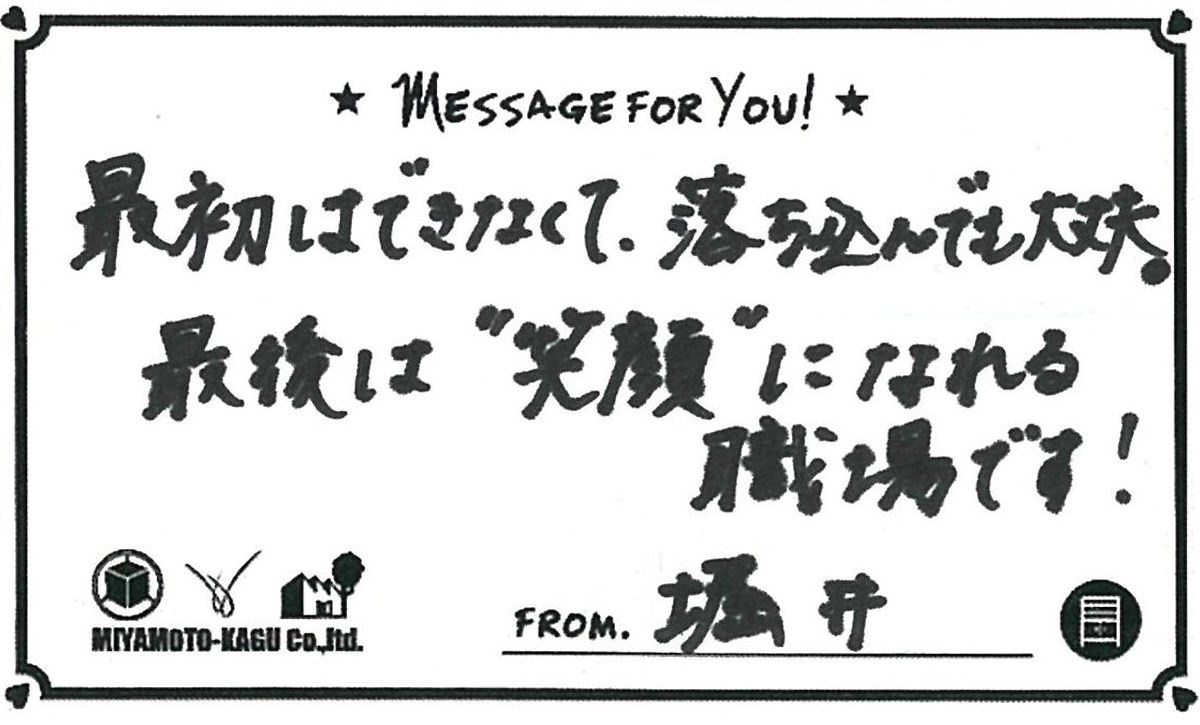 ★ MESSAGE FOR YOU! ★
最初はできなくて、落ち込んでも大丈夫。
最後は"笑顔"になれる
職場です!
FROM. 堀井
MIYAMOTO-KAGU Co.,ltd.